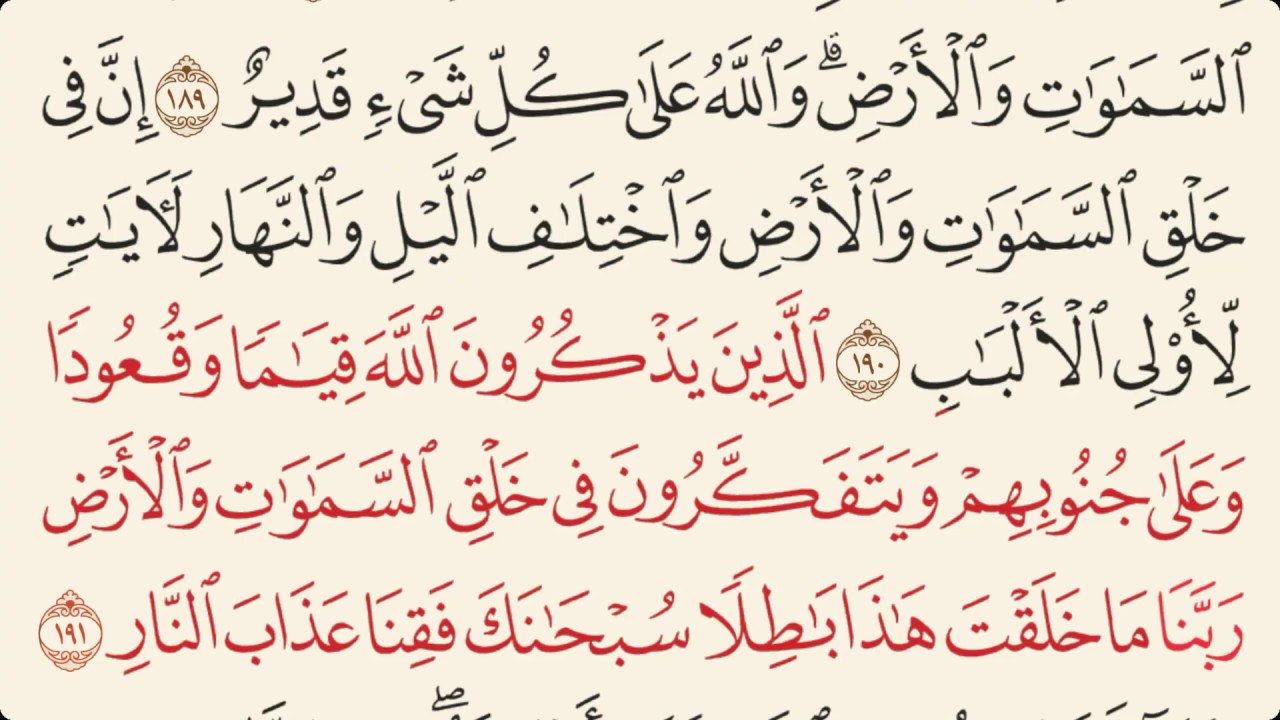 ٱلسَّمَٰوَٰتِ وَٱلْأَرْضِ ۗ وَٱللَّهُ عَلَىٰ كُلِّ شَىْءٍ قَدِيرٌ ١٨٩ إِنَّ فِى
خَلْقِ ٱلسَّمَٰوَٰتِ وَٱلْأَرْضِ وَٱخْتِلَٰفِ ٱلَّيْلِ وَٱلنَّهَارِ لَءَايَٰتٍ
لِّأُو۟لِى ٱلْأَلْبَٰبِ ١٩٠ ٱلَّذِينَ يَذْكُرُونَ ٱللَّهَ قِيَٰمًا وَقُعُودًا
وَعَلَىٰ جُنُوبِهِمْ وَيَتَفَكَّرُونَ فِى خَلْقِ ٱلسَّمَٰوَٰتِ وَٱلْأَرْضِ
رَبَّنَا مَا خَلَقْتَ هَٰذَا بَٰطِلًا سُبْحَٰنَكَ فَقِنَا عَذَابَ ٱلنَّارِ ١٩١